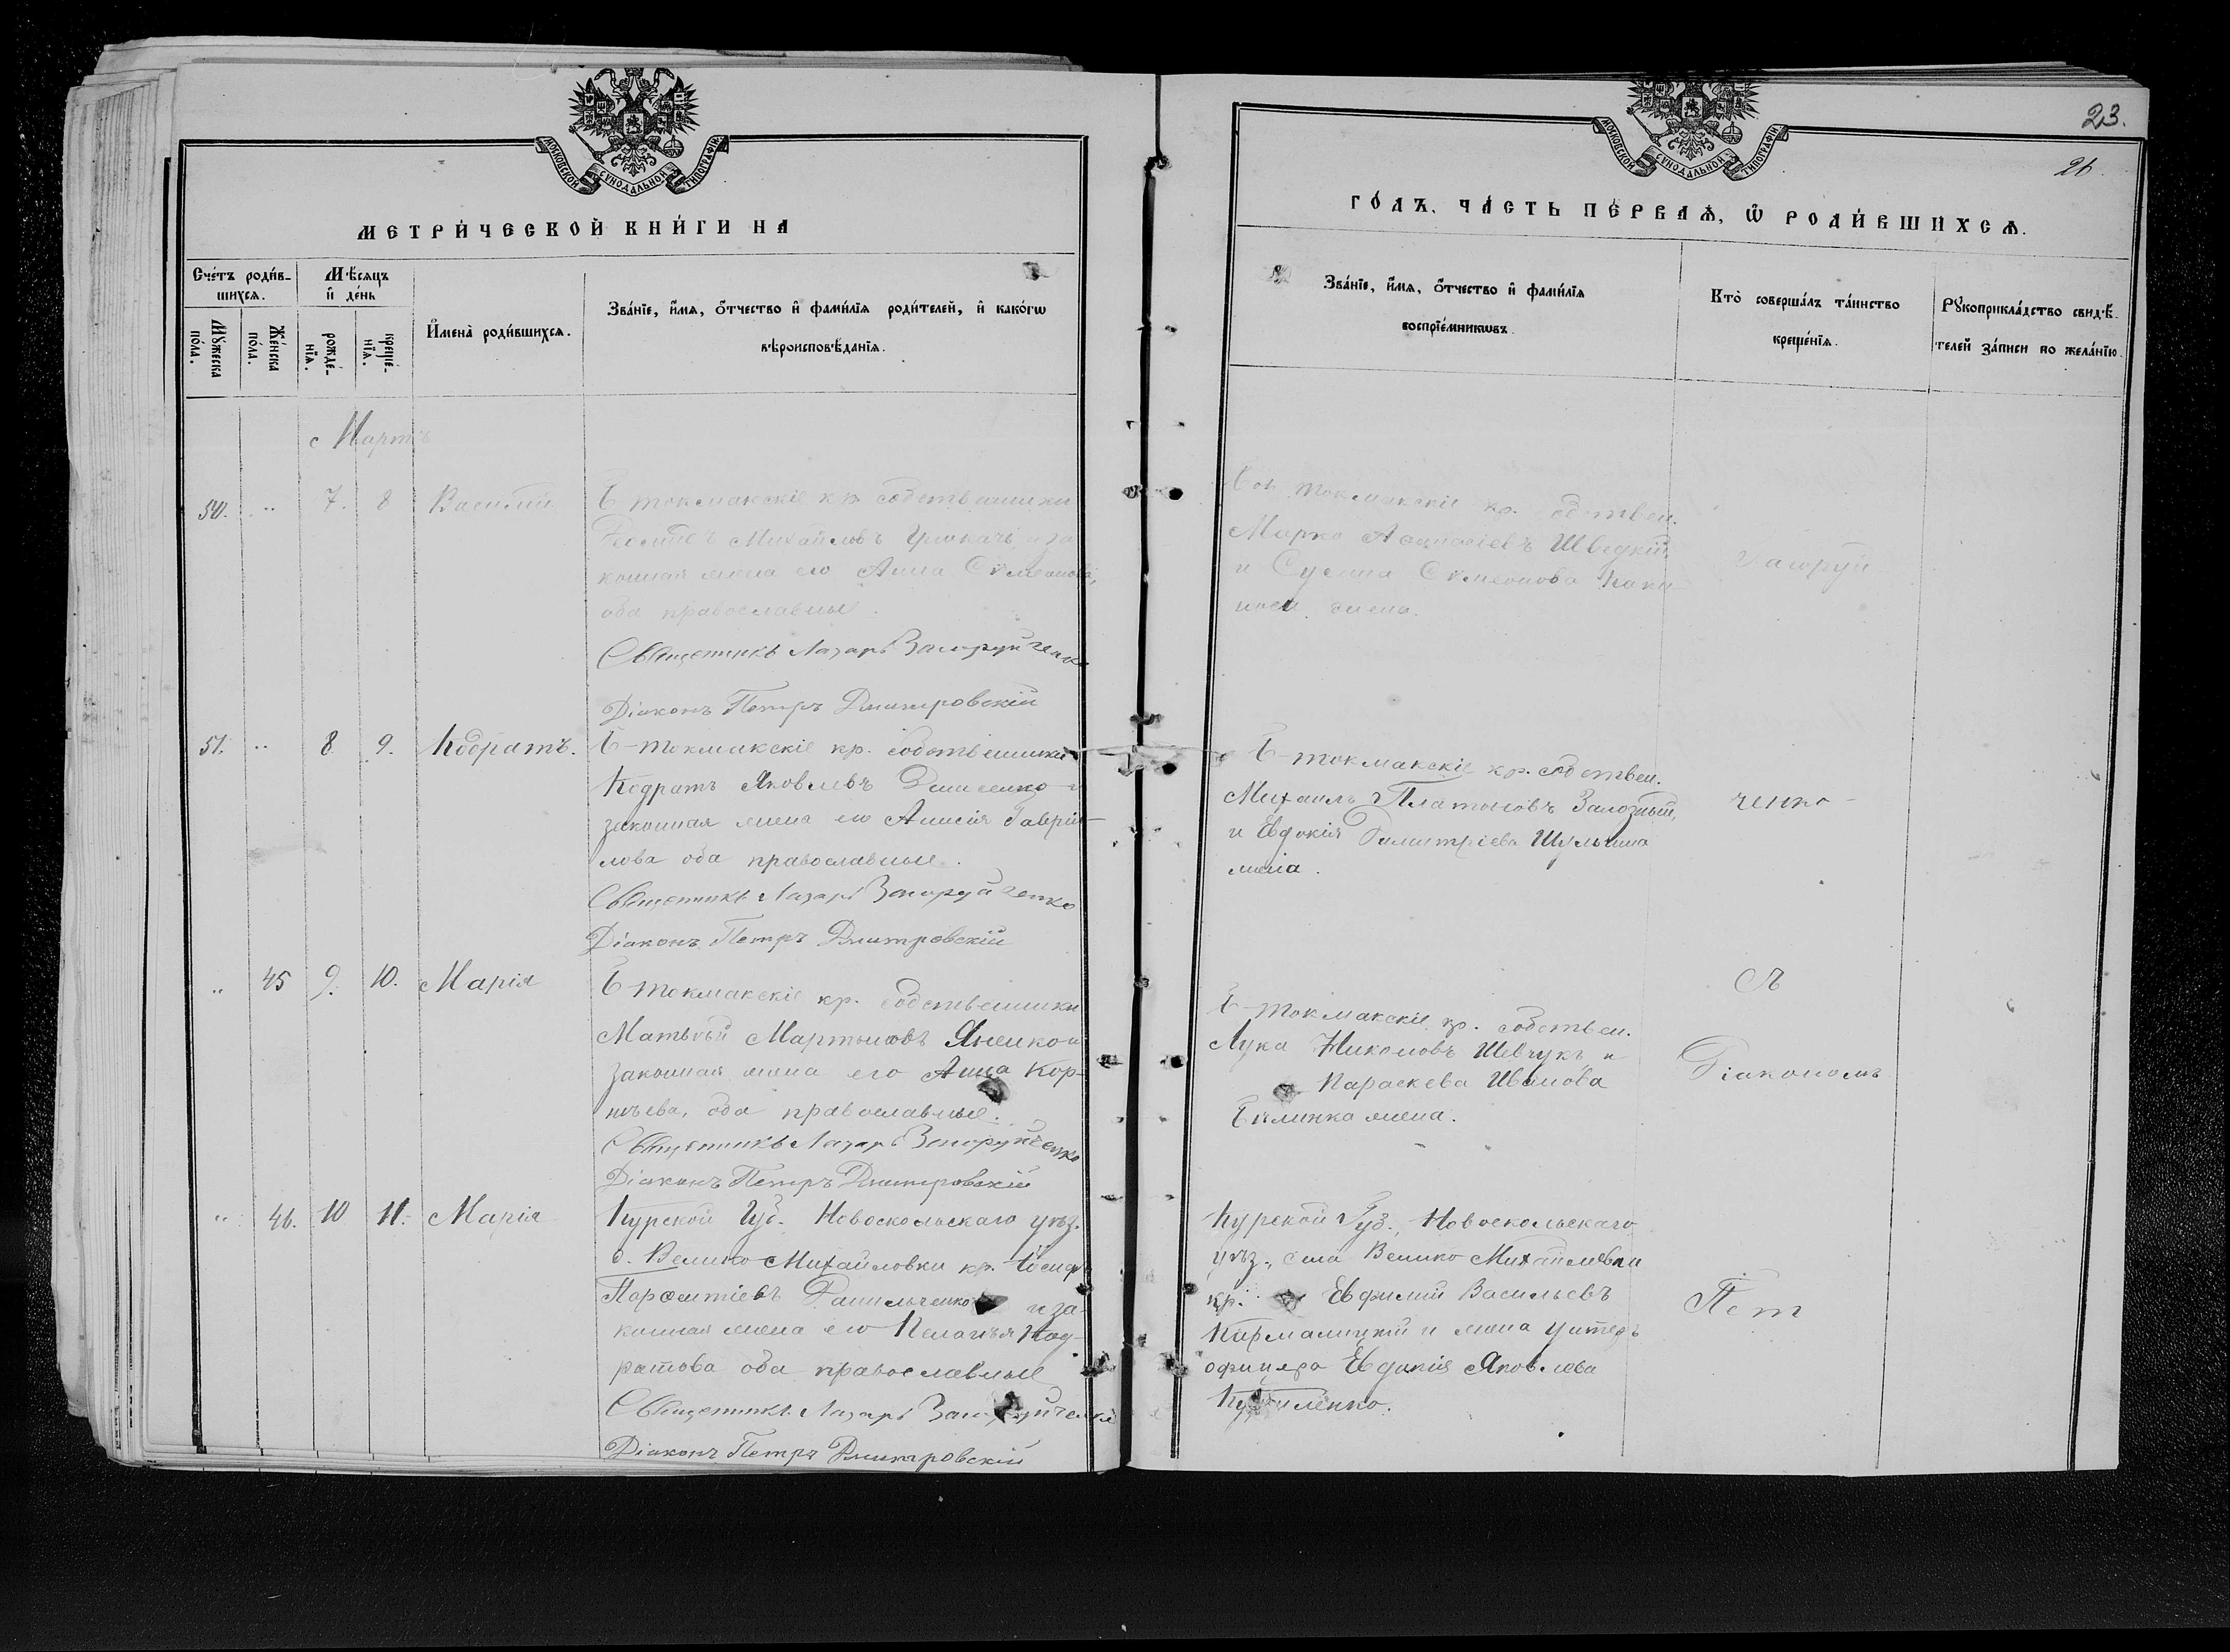 МОСКОВСКОЙ СѴНОДАЛЬНОЙ ТИПОГРАФІИ
МЕТРИ́ЧЕСКОЙ КНИ́ГИ НА
Сче́тъ роди́в-
шихсѧ.
Мѣ́сѧцъ
и҆ де́нь
Мꙋ́жеска
по́ла.
Же́нска
по́ла.
рожде́-
нїѧ.
креще́-
нїѧ.
И҆мена̀ роди́вшихсѧ.
Зва́нїе, и҆́мѧ, ѻ҆́тчество и҆ фами́лїѧ роди́телей, и҆ како́гѡ
вѣроисповѣ́данїѧ.
Мартъ
50. „ 7. 8 Василій
Б токмакскіе кр. собственники
Михайловъ и за
конная жена его Анна Симеонова,
оба православные.
Священникъ Лазарь Загоруйченко
Діаконъ Петръ Дмитровскій
51. „ 8 9. Кодратъ.
Б-токмакскіе кр. собственники
Кодратъ Яковлевъ Денисенко и
законная жена его Анисія Гаврі-
лова оба православные.
Священникъ Лазарь Загоруйченко
Діаконъ Петръ Дмитровскій
„ 45 9. 10. Марія
Б-токмакскіе кр. собственники
Матвѣй Мартыновъ Яненко и
законная жена его Анна Кор-
нѣева, оба православные.
Священникъ Лазарь Загоруйченко
Діаконъ Петръ Дмитровскій
„ 46. 10 11. Марія
Курской Губ. Новоскольскаго уѣз.
с. Велико Михайловки кр. Іосифъ
Данильченко и за-
конная жена его Пелагѣя Код-
ратова оба православные
Священникъ Лазарь Загоруйченко
Діаконъ Петръ Дмитровскій
23.
26.
МОСКОВСКОЙ СѴНОДАЛЬНОЙ ТИПОГРАФІИ
ГО́ДЪ, ЧА́СТЬ ПЕ́РВАѦ, Ѡ҆ РОДИ́ВШИХСѦ.
Зва́нїе, и҆́мѧ, ѻ҆́тчество и҆ фами́лїѧ
воспрїе́мникѡвъ.
Кто̀ соверша́лъ та́инство
креще́нїѧ.
Рꙋкоприкла́дство свидѣ́-
телей за́писи по жела́нїю.
токмакскіе кр. собствен.
Марко Аѳанасіевъ Швецкій
и Сусанна Симеонова
жена.
Загоруй
Б-токмакскіе кр. собствен.
Михаилъ Платоновъ Залозный,
и Евдокія Димитріева Шульгина
жена.
ченко
съ
Б-токмакскіе кр. собствен.
Лука Никоновъ Шевчукъ и
Параскева Иванова
Билинка жена.
Діакономъ
Курской Губ., Новоскольскаго
уѣз., села Велико Михайловки
кр. Евфимій Васильевъ
и жена унтеръ
офицера Евдокія Яковлева
Пет